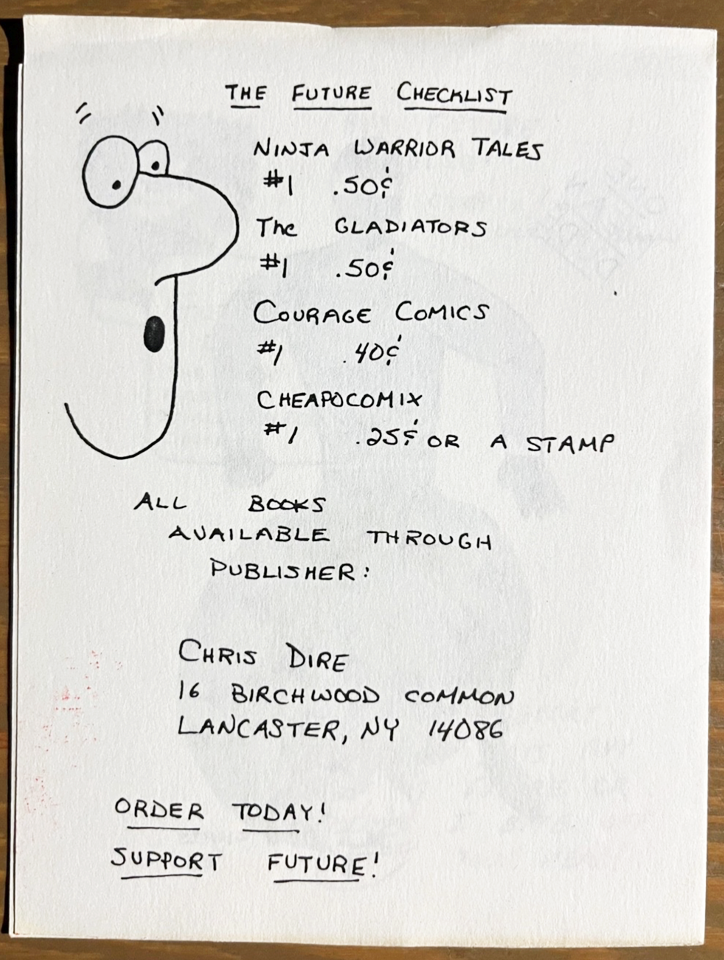 THE FUTURE CHECKLIST
NINJA WARRIOR TALES
#1 .50¢
The GLADIATORS
#1 .50¢
COURAGE COMICS
#1 .40¢
CHEAPOCOMIX
#1 .25¢ OR A STAMP
ALL BOOKS
AVAILABLE THROUGH
PUBLISHER:
CHRIS DIRE
16 BIRCHWOOD COMMON
LANCASTER, NY 14086
ORDER TODAY!
SUPPORT FUTURE!